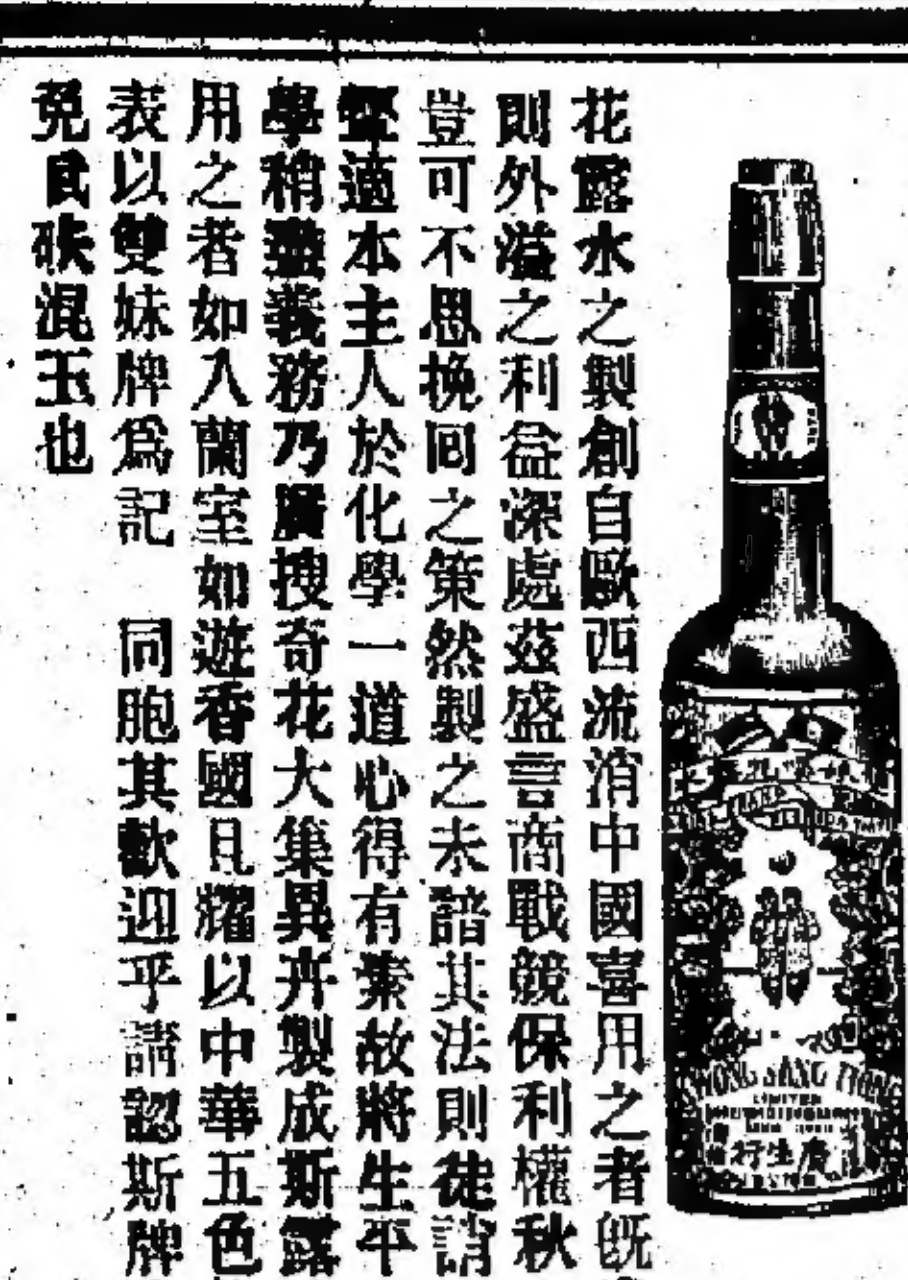 花露水之製創自歐西流消中國喜用之者既
則外溢之利益深處茲盛言商戰競保利權秋
豈可不思挽回之策然製之未諳其法則徒誚
適本主人於化學一道心得有素故將生平
學稍盡義務乃廣搜奇花大集異卉製成斯露
用之者如入蘭室如遊香國且耀以中華五色
表以雙妹牌為記 同胞其歡迎乎請認斯牌
免砆混玉也
KWONG SANG HONG
LIMITED
行生廣